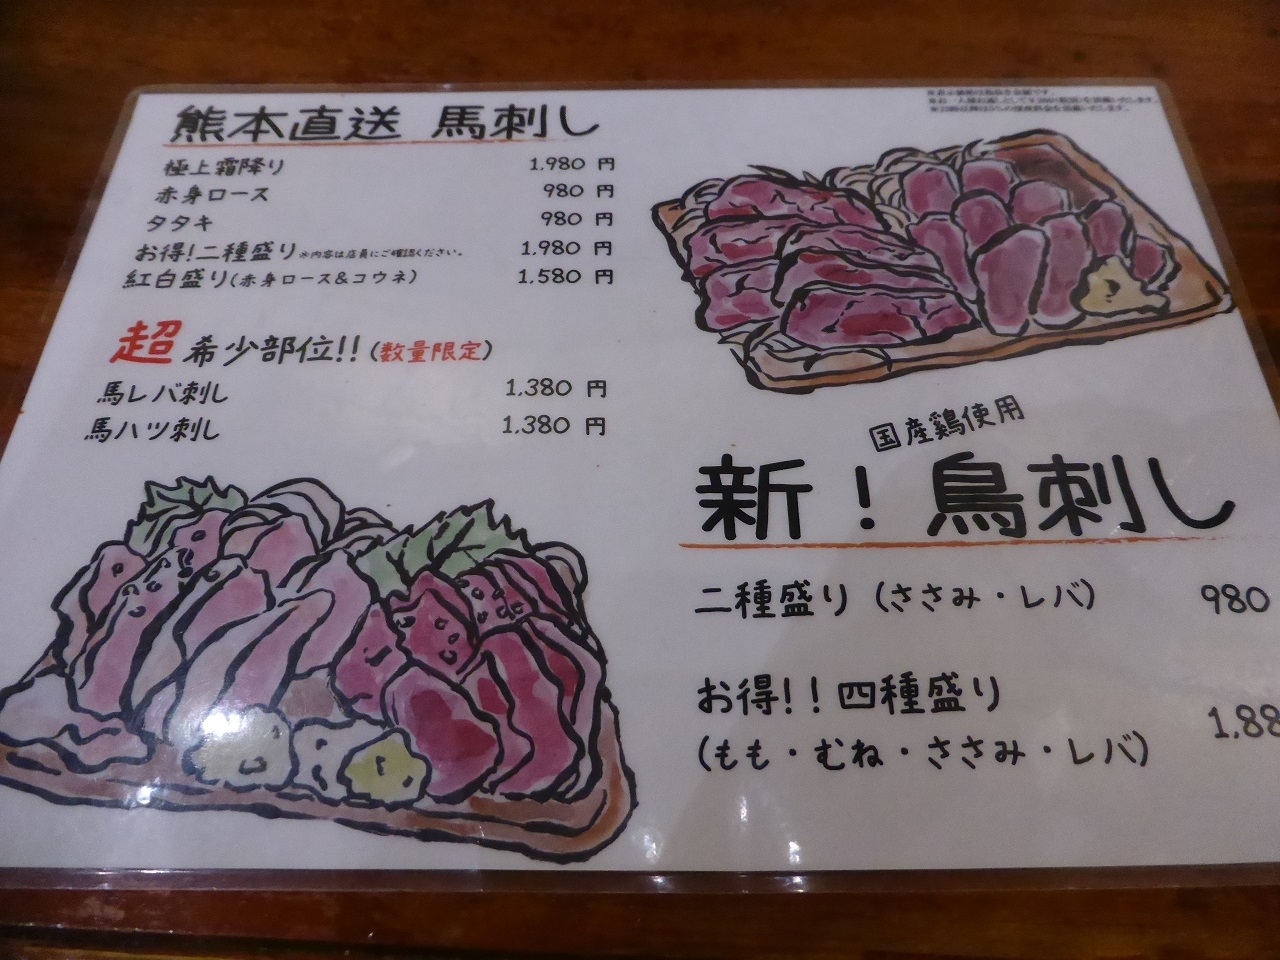 熊本直送 馬刺し
極上霜降り 1.980 円
赤身ロース 980 円
タタキ 980 円
お得!二種盛り※内容は店員にご確認ください。 1.980 円
紅白盛り(赤身ロース&コウネ) 1.580 円
超 希少部位!!(数量限定)
馬レバ刺し 1,380 円
馬ハツ刺し 1,380 円
国産鶏使用
新!鳥刺し
二種盛り(ささみ・レバ) 980
お得!!四種盛り
(もも・むね・ささみ・レバ) 1,88